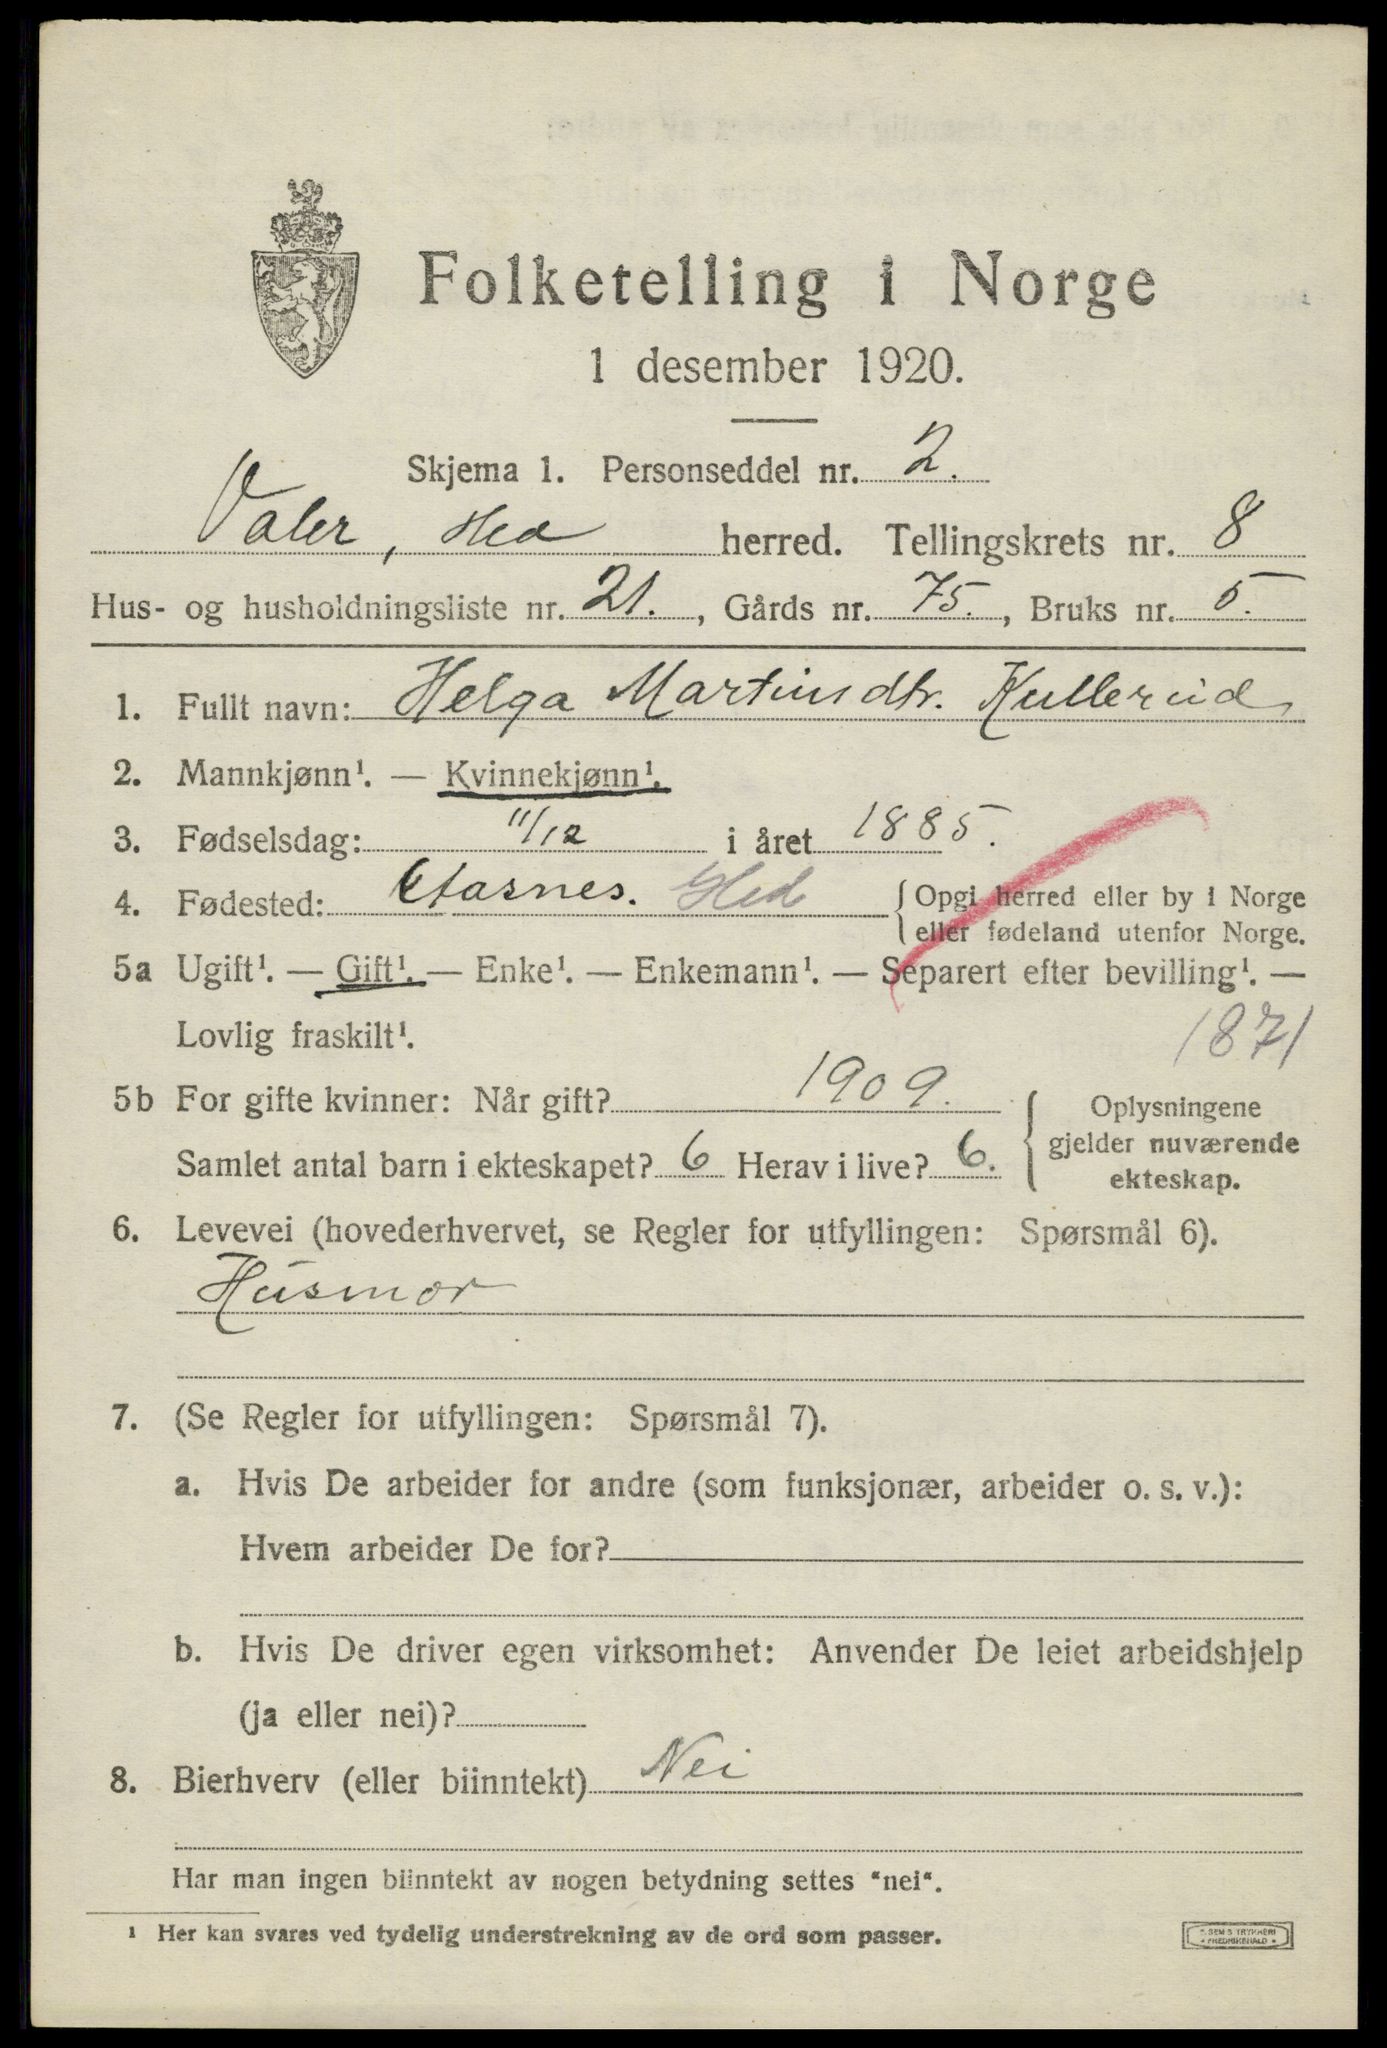 Folketelling i Norge
1 desember 1920.
Skjema 1. Personseddel nr. 2.
Våler, Hed herred. Tellingskrets nr. 8
Hus- og husholdningsliste nr. 21., Gårds nr. 75., Bruks nr. 5.
1. Fullt navn: Helga Martinsdtr. Kullerud
2. Mannkjønn¹. — Kvinnekjønn¹.
3. Fødselsdag: 11/12 i året 1885.
4. Fødested: Aasnes. Hed { Opgi herred eller by i Norge
eller fødeland utenfor Norge.
5a Ugift¹. — Gift¹. — Enke¹. — Enkemann¹. — Separert efter bevilling¹. —
Lovlig fraskilt¹. 1871
5b For gifte kvinner: Når gift? 1909. { Oplysningene
Samlet antal barn i ekteskapet? 6 Herav i live? 6. gjelder nuværende
ekteskap.
6. Levevei (hovederhvervet, se Regler for utfyllingen: Spørsmål 6).
Husmor
7. (Se Regler for utfyllingen: Spørsmål 7).
a. Hvis De arbeider for andre (som funksjonær, arbeider o. s. v.):
Hvem arbeider De for?
b. Hvis De driver egen virksomhet: Anvender De leiet arbeidshjelp
(ja eller nei)?
8. Bierhverv (eller biinntekt) Nei
Har man ingen biinntekt av nogen betydning settes "nei".
¹ Her kan svares ved tydelig understrekning av de ord som passer.
SEM'S TRYKKERI
FREDRIKSHALD